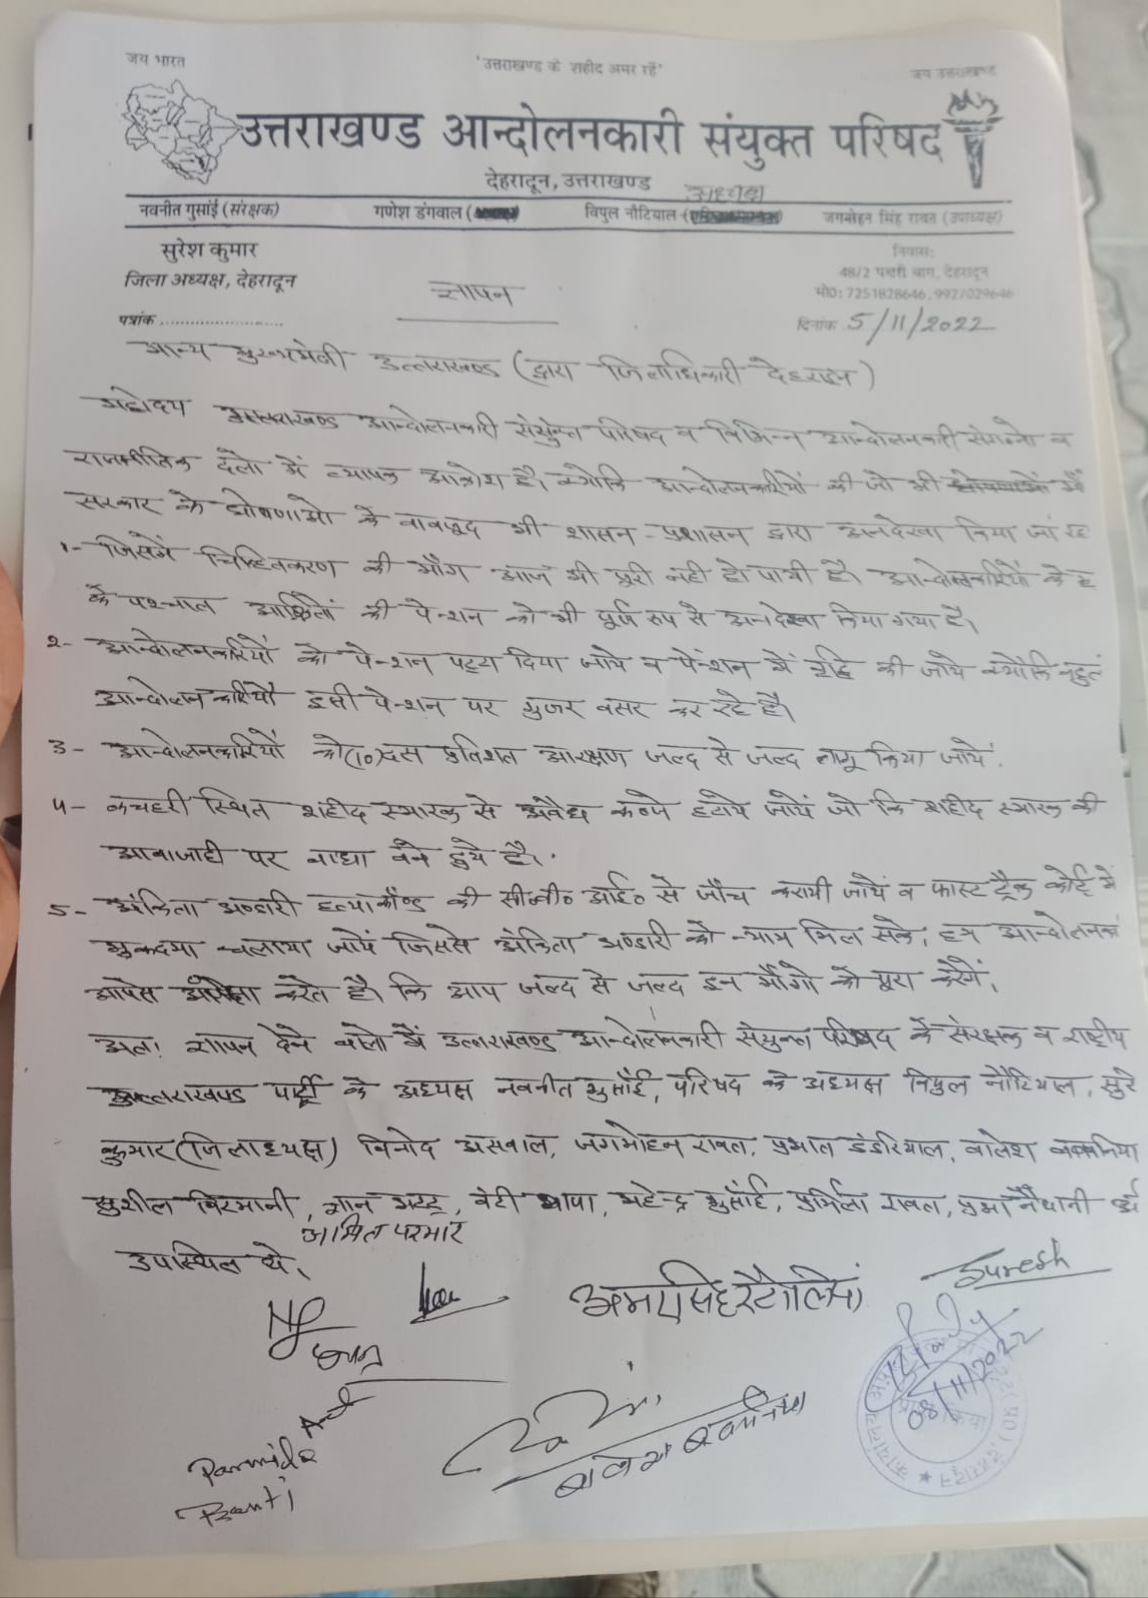 जय भारत
'उत्तराखण्ड के शहीद अमर रहें'
जय उत्तराखण्ड
उत्तराखण्ड आन्दोलनकारी संयुक्त परिषद
देहरादून, उत्तराखण्ड
अध्यक्ष
नवनीत गुसांई (संरक्षक) गणेश डंगवाल विपुल नौटियाल जगमोहन सिंह रावत (उपाध्यक्ष)
सुरेश कुमार
जिला अध्यक्ष, देहरादून
निवास:
48/2 पथरी बाग, देहरादून
मो0: 7251828646, 9927029646
ज्ञापन
पत्रांक ..........................
दिनांक 5/11/2022
मान्य मुख्यमंत्री उत्तराखण्ड (द्वारा जिलाधिकारी देहरादून)
महोदय उत्तराखण्ड आन्दोलनकारी संयुक्त परिषद व विभिन्न आन्दोलनकारी संगठनो व
राजनीतिक दलो में व्यापक आक्रोश है। क्योकि आन्दोलनकारीयों की जो भी
सरकार के घोषणाओ के वावजूद भी शासन-प्रशासन द्वारा अनदेखा किया जा
1- जिसमें चिन्हितकरण की माँग आज भी पूरी नही हो पायी है। आन्दोलनकारियों के
के पश्चात आश्रितों की पेन्शन को भी पूर्ण रूप से अनदेखा किया गया है।
2- आन्दोलनकारियों को पेन्शन पट्टा दिया जाये व पेंन्शन में वृद्धि की जाये क्योकि बहुत
आन्दोलनकारियों इसी पेन्शन पर गुजर वसर कर रहे है।
3- आन्दोलनकारियों को (10) दस प्रतिशत आरक्षण जल्द से जल्द लागू किया जाये।
4- कचहरी स्थित शहीद स्मारक से अवैध कब्जे हटाये जाये जो कि शहीद स्मारक की
आवाजाही पर बाधा बने हुये है।
5- अंकिता भण्डारी हत्याकाँण्ड की सी०बी० आई० से जाँच करायी जाये व फास्ट ट्रैक कोर्ट में
मुकदमा चलाया जाये जिससे अंकिता भण्डारी को न्याय मिल सके, हम
आपसे करते है। कि आप जल्द से जल्द इन माँगो को पूरा करेंगें।
अतः ज्ञापन देने वालो में उत्तराखण्ड आन्दोलनकारी संयुक्त परिषद के संरक्षक व राष्ट्रीय
उत्तराखण्ड पार्टी के अध्यक्ष नवनीत गुसाँई, परिषद के अध्यक्ष विपुल नौटियाल,
कुमार (जिलाध्यक्ष) विनोद असवाल, जगमोहन रावत, प्रभात डंडरियाल, बालेश
सुशील विरमानी, भट्ट, बंटी थापा, महेन्द्र गुसाँई, रावत, प्रभा नैथानी
अमित परमार
उपस्थित थे।
Suresh
08/11/2022
बालेश बवानिया
Banti